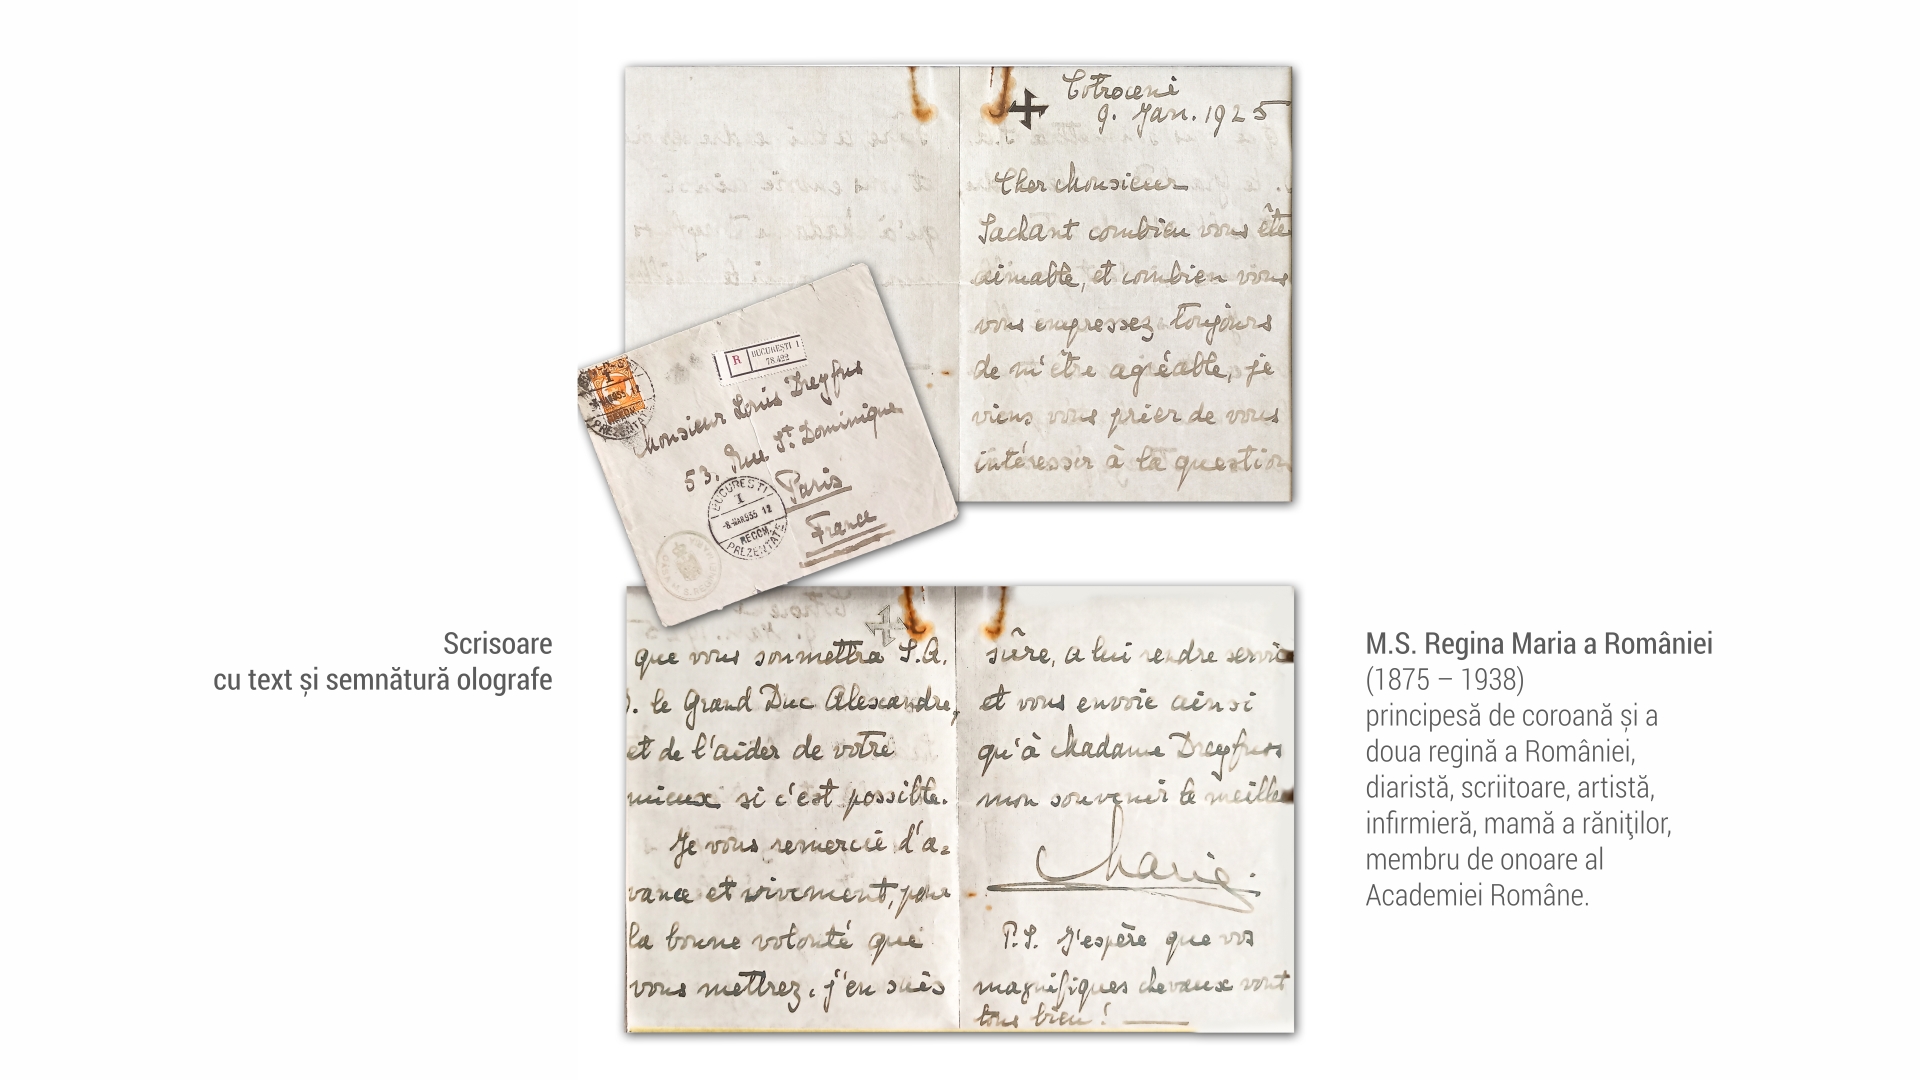 Cotroceni
9. Jan. 1925
Cher Monsieur
Sachant combien vous ête
aimable, et combien vous
vous empressez toujours
de m'être agréable, je
viens vous prier de vous
intéresser à la question
R BUCUREȘTI 1
78.422
Monsieur Louis Dreyfus
53, Rue St. Dominique
Paris
France
BUCUREȘTI
1
-8.MAR935 12
RECOM.
PREZENTATE
que vous soumettra S.A.
I. le Grand Duc Alexandre,
et de l'aider de votre
mieux si c'est possible.
Je vous remercie d'a-
vance et vivement, pour
la bonne volonté que
vous mettrez, j'en suis
sûre, a lui rendre servic
et vous envoie ainsi
qu'à Madame Dreyfuss
mon souvenir le meille
Marie.
P.S. J'espère que vos
magnifiques chevaux vont
tous bien!
Scrisoare
cu text și semnătură olografe
M.S. Regina Maria a României
(1875 – 1938)
principesă de coroană și a
doua regină a României,
diaristă, scriitoare, artistă,
infirmieră, mamă a răniţilor,
membru de onoare al
Academiei Române.